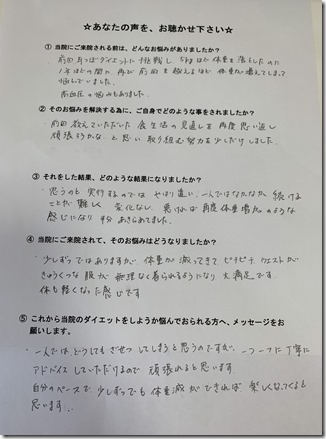 ☆あなたの声を、お聴かせ下さい☆
① 当院にご来院される前は、どんなお悩みがありましたか?
前回 耳つぼダイエットに挑戦し 5kgほど体重を落としたのに
1年ほどの間に 再び前回を越えるほど 体重が増えてしまって
悩んでいました。
高血圧の悩みもありました。
② そのお悩みを解決する為に、ご自身でどのような事をされましたか?
前回 教えていただいた 食生活の見直しを 再度 思い返し
頑張ろうかな と思い 取り組む努力を少しだけしました。
③ それをした結果、どのような結果になりましたか?
思うのと 実行するのでは やはり違い、一人ではなかなか 続ける
ことが難しく 変化なし 悪ければ 再度 体重増加のような
感じになり 半分あきらめてました。
④ 当院にご来院されて、そのお悩みはどうなりましたか?
少しずつではありますが 体重が減ってきて ピチピチ ウエストが
きゅうくつな服が 無理なく着られるようになり 大満足です。
体も軽くなった感じです
⑤ これから当院のダイエットをしようか悩んでおられる方へ、メッセージをお
願いします。
・一人では どうしても ざせつしてしまうと思うのですが、一つ一つに丁寧に
アドバイスしていただけるので 頑張れると思います
自分のペースで 少しずつでも 体重減ができれば 楽しくなってくると
思います。